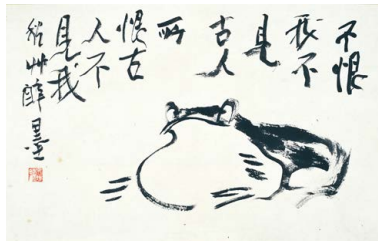 不恨
我不
見
古人
所
恨古
人不
見我
狂艸醉墨